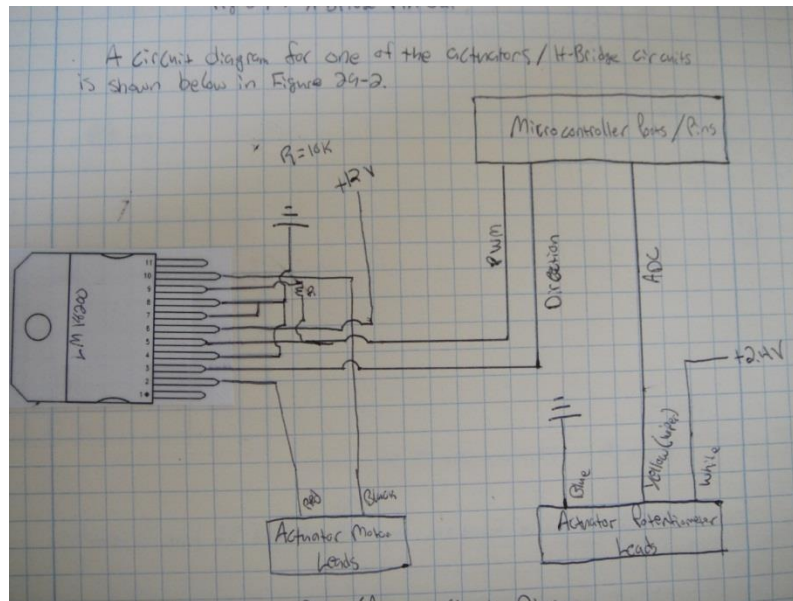 A circuit diagram for one of the actuators / H-Bridge circuits
is shown below in Figure 29-2.
Microcontroller Ports / Pins
R=10K
+12V
PWM
Direction
ADC
LM18200
11
10
9
8
7
6
5
4
3
2
1
R
+2.4V
Red
Black
Blue
Yellow (wiper)
White
Actuator Motor
Leads
Actuator Potentiometer
Leads